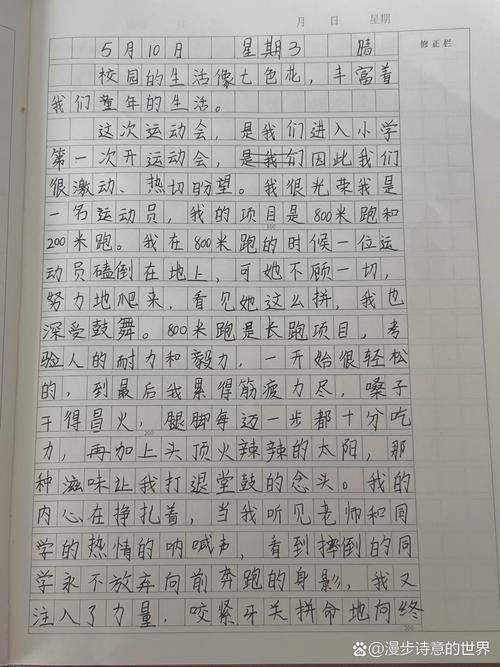 月 日 星期
修正栏
5月10日 星期3 晴
校园的生活像七色花，丰富着
我们童年的生活。
这次运动会，是我们进入小学
第一次开运动会，是我们因此我们
很激动、热切盼望。我很光荣我是
一名运动员，我的项目是800米跑和
200米跑。我在800米跑的时候一位运
动员磕倒在地上，可她不顾一切，
努力地爬来，看见她这么拼，我也
深受鼓舞。800米跑是长跑项目，考
验人的耐力和毅力，一开始很轻松
的，到最后我累得筋疲力尽，嗓子
干得冒火，腿脚每迈一步都十分吃
力，再加上头顶火辣辣的太阳，那
种滋味让我打退堂鼓的念头。我的
内心在挣扎着，当我听见老师和同
学的热情的呐喊声，看到摔倒的同
学永不放弃向前奔跑的身影，我又
注入了力量，咬紧牙关拼命地向终
100
200
300
@漫步诗意的世界